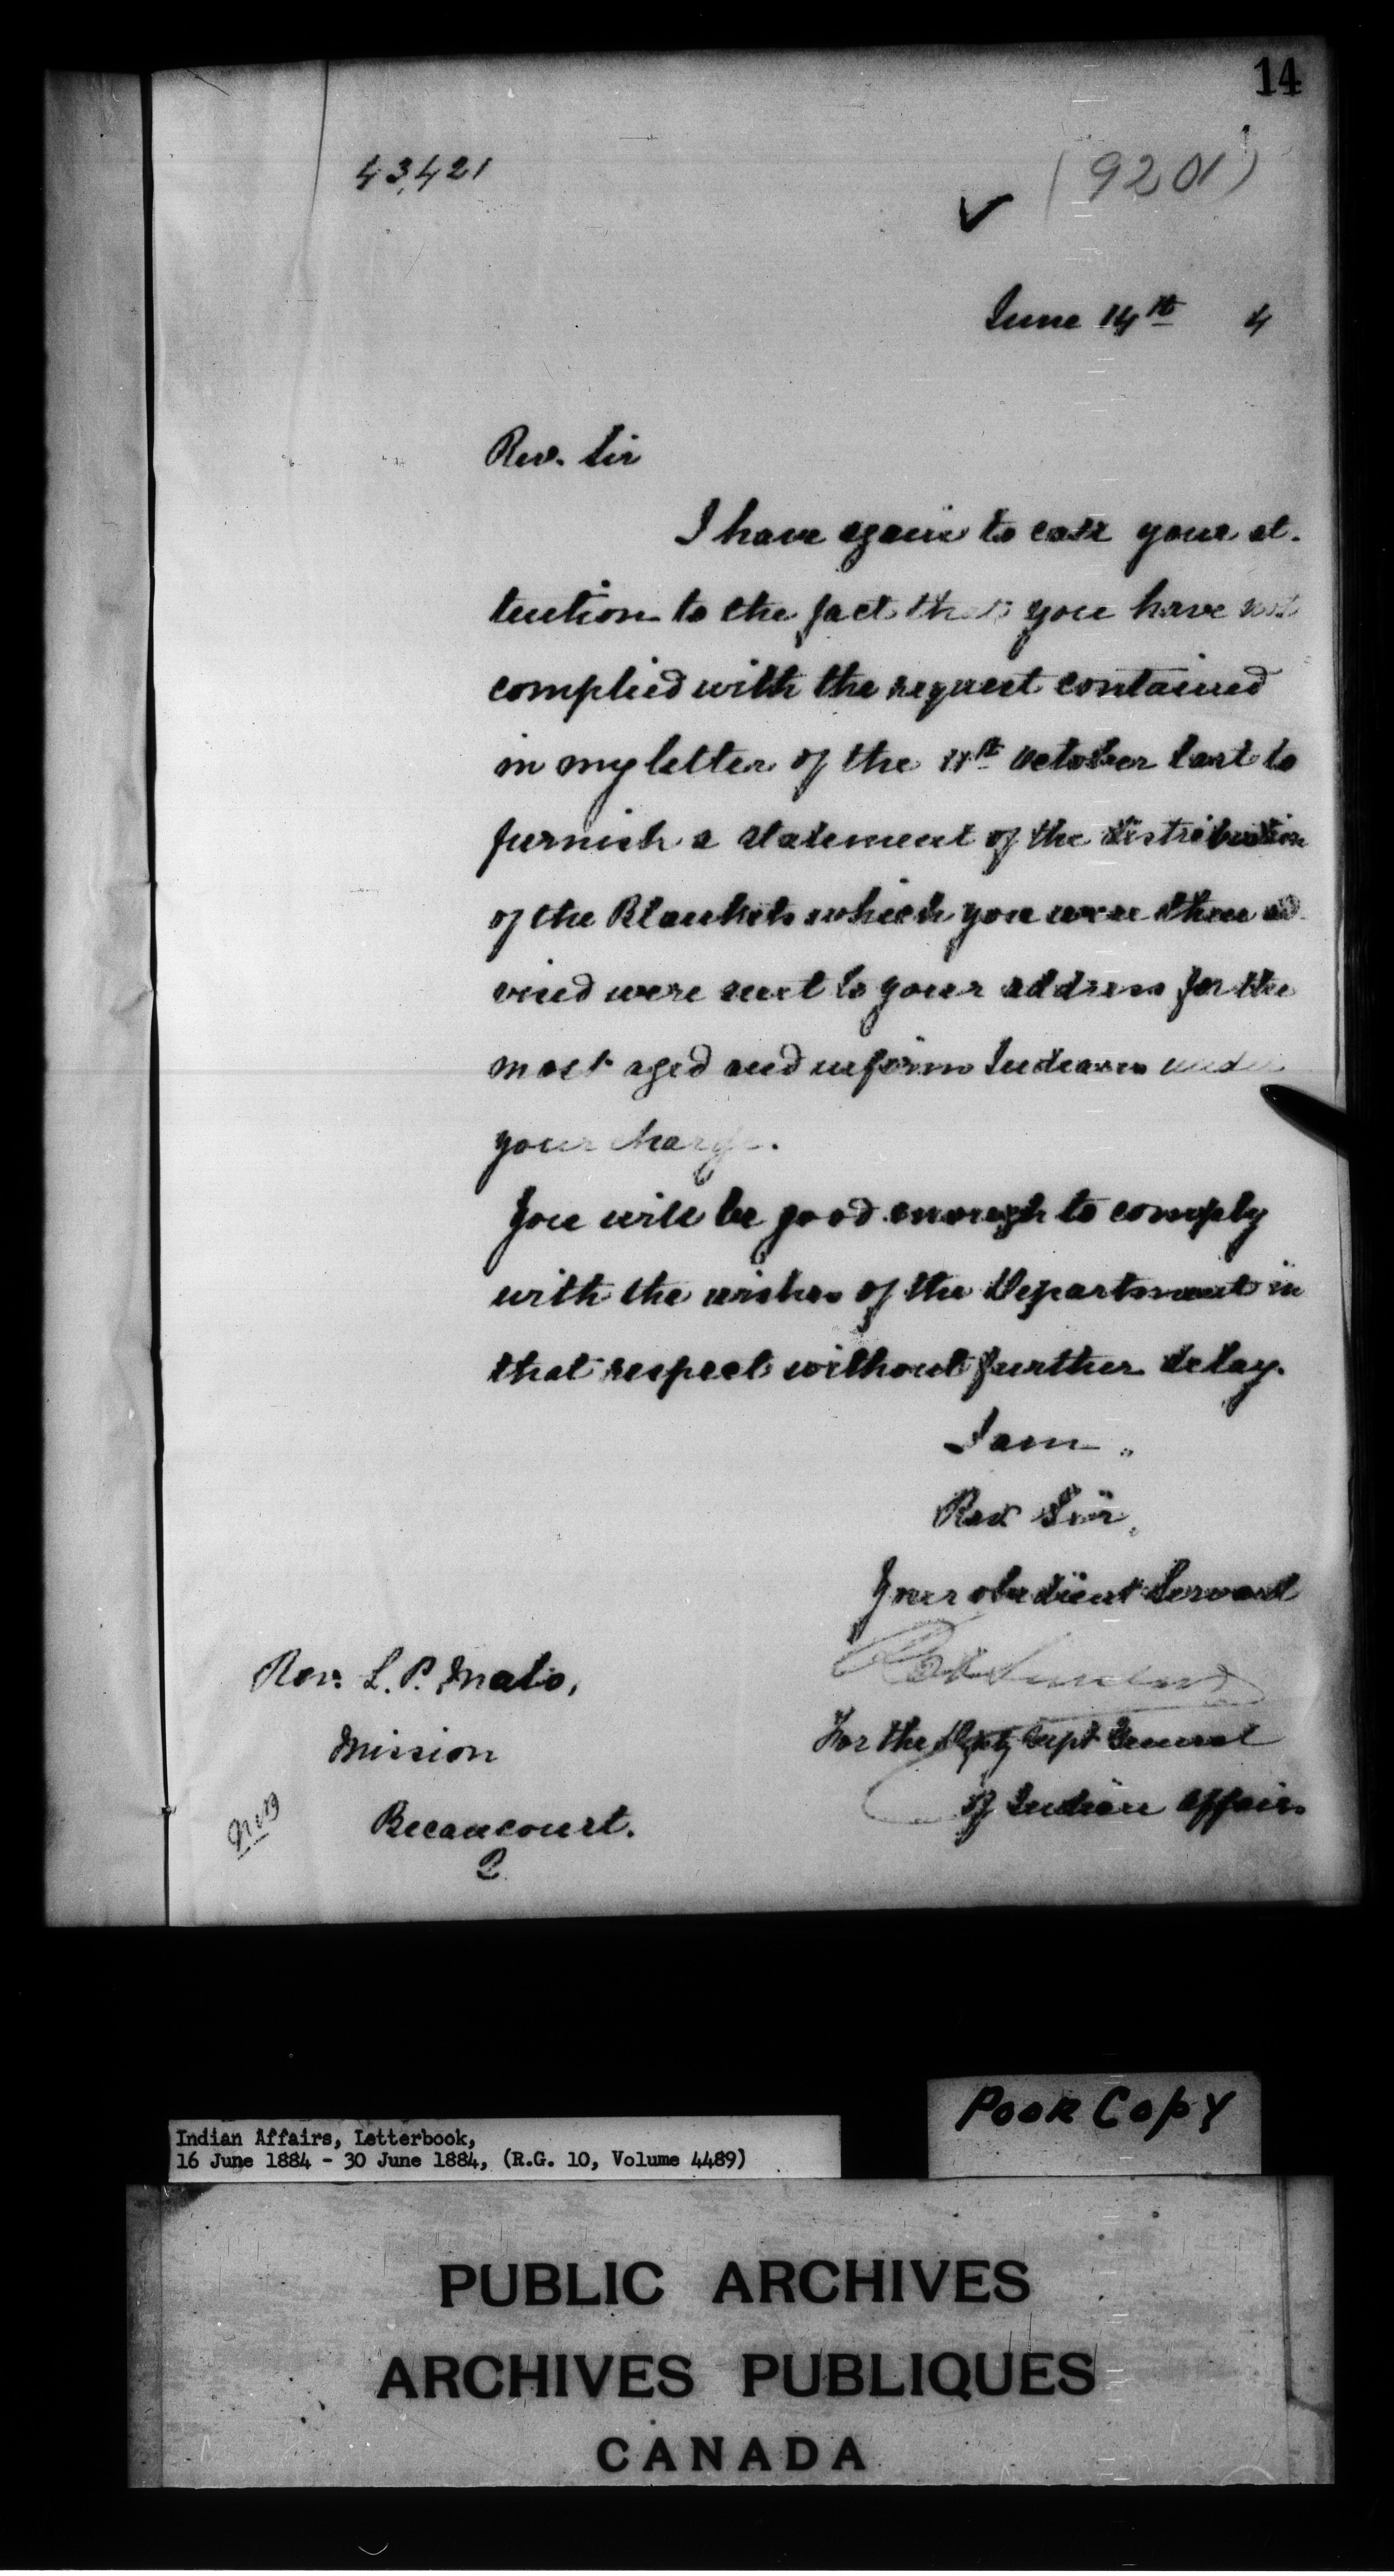 14
43,421
(9201)
June 14th 4
Rev. Sir
I have again to call your at-
tention to the fact that you have not
complied with the request contained
in my letter of the October last to
furnish a statement of the distribution
of the Blankets which you were then ad-
vised were sent to your address for the
most aged and infirm Indians under
your charge.
You will be good enough to comply
with the wishes of the Department in
that respect without further delay.
I am,
Rev Sir,
Your obedient Servant
For the Dpty Supt General
of Indian Affairs
Rev. L. P. Malo,
Mission
Becancourt.
Q
Poor Copy
Indian Affairs, Letterbook,
16 June 1884 - 30 June 1884, (R.G. 10, Volume 4489)
PUBLIC ARCHIVES
ARCHIVES PUBLIQUES
CANADA